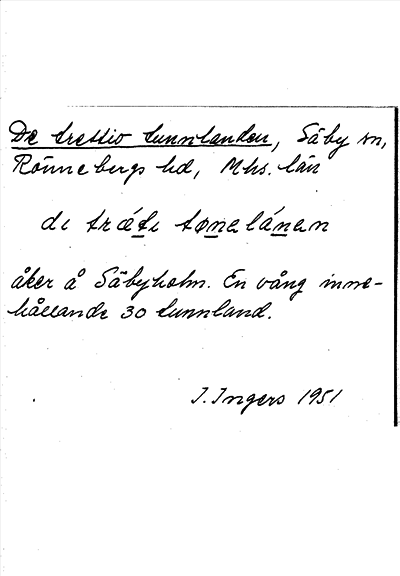 De trettio tunnlanden, Säby sn,
Rönnebergs hd, Mhs. län
di trǽti tønelánen
åker å Säbyholm. En vång inne-
hållande 30 tunnland.
I. Ingers 1951